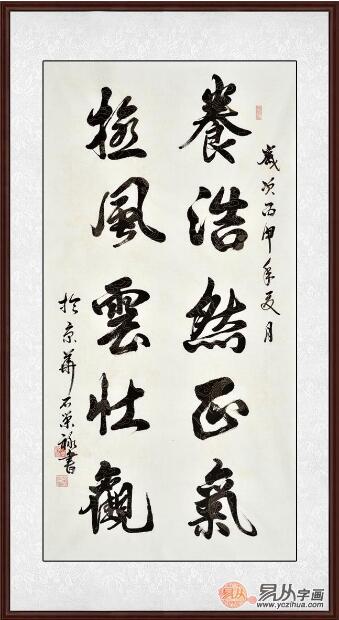 歲次丙申年夏月
養浩然正氣
極風雲壯觀
於京華石榮祿書
易从字画
www.yczihua.com